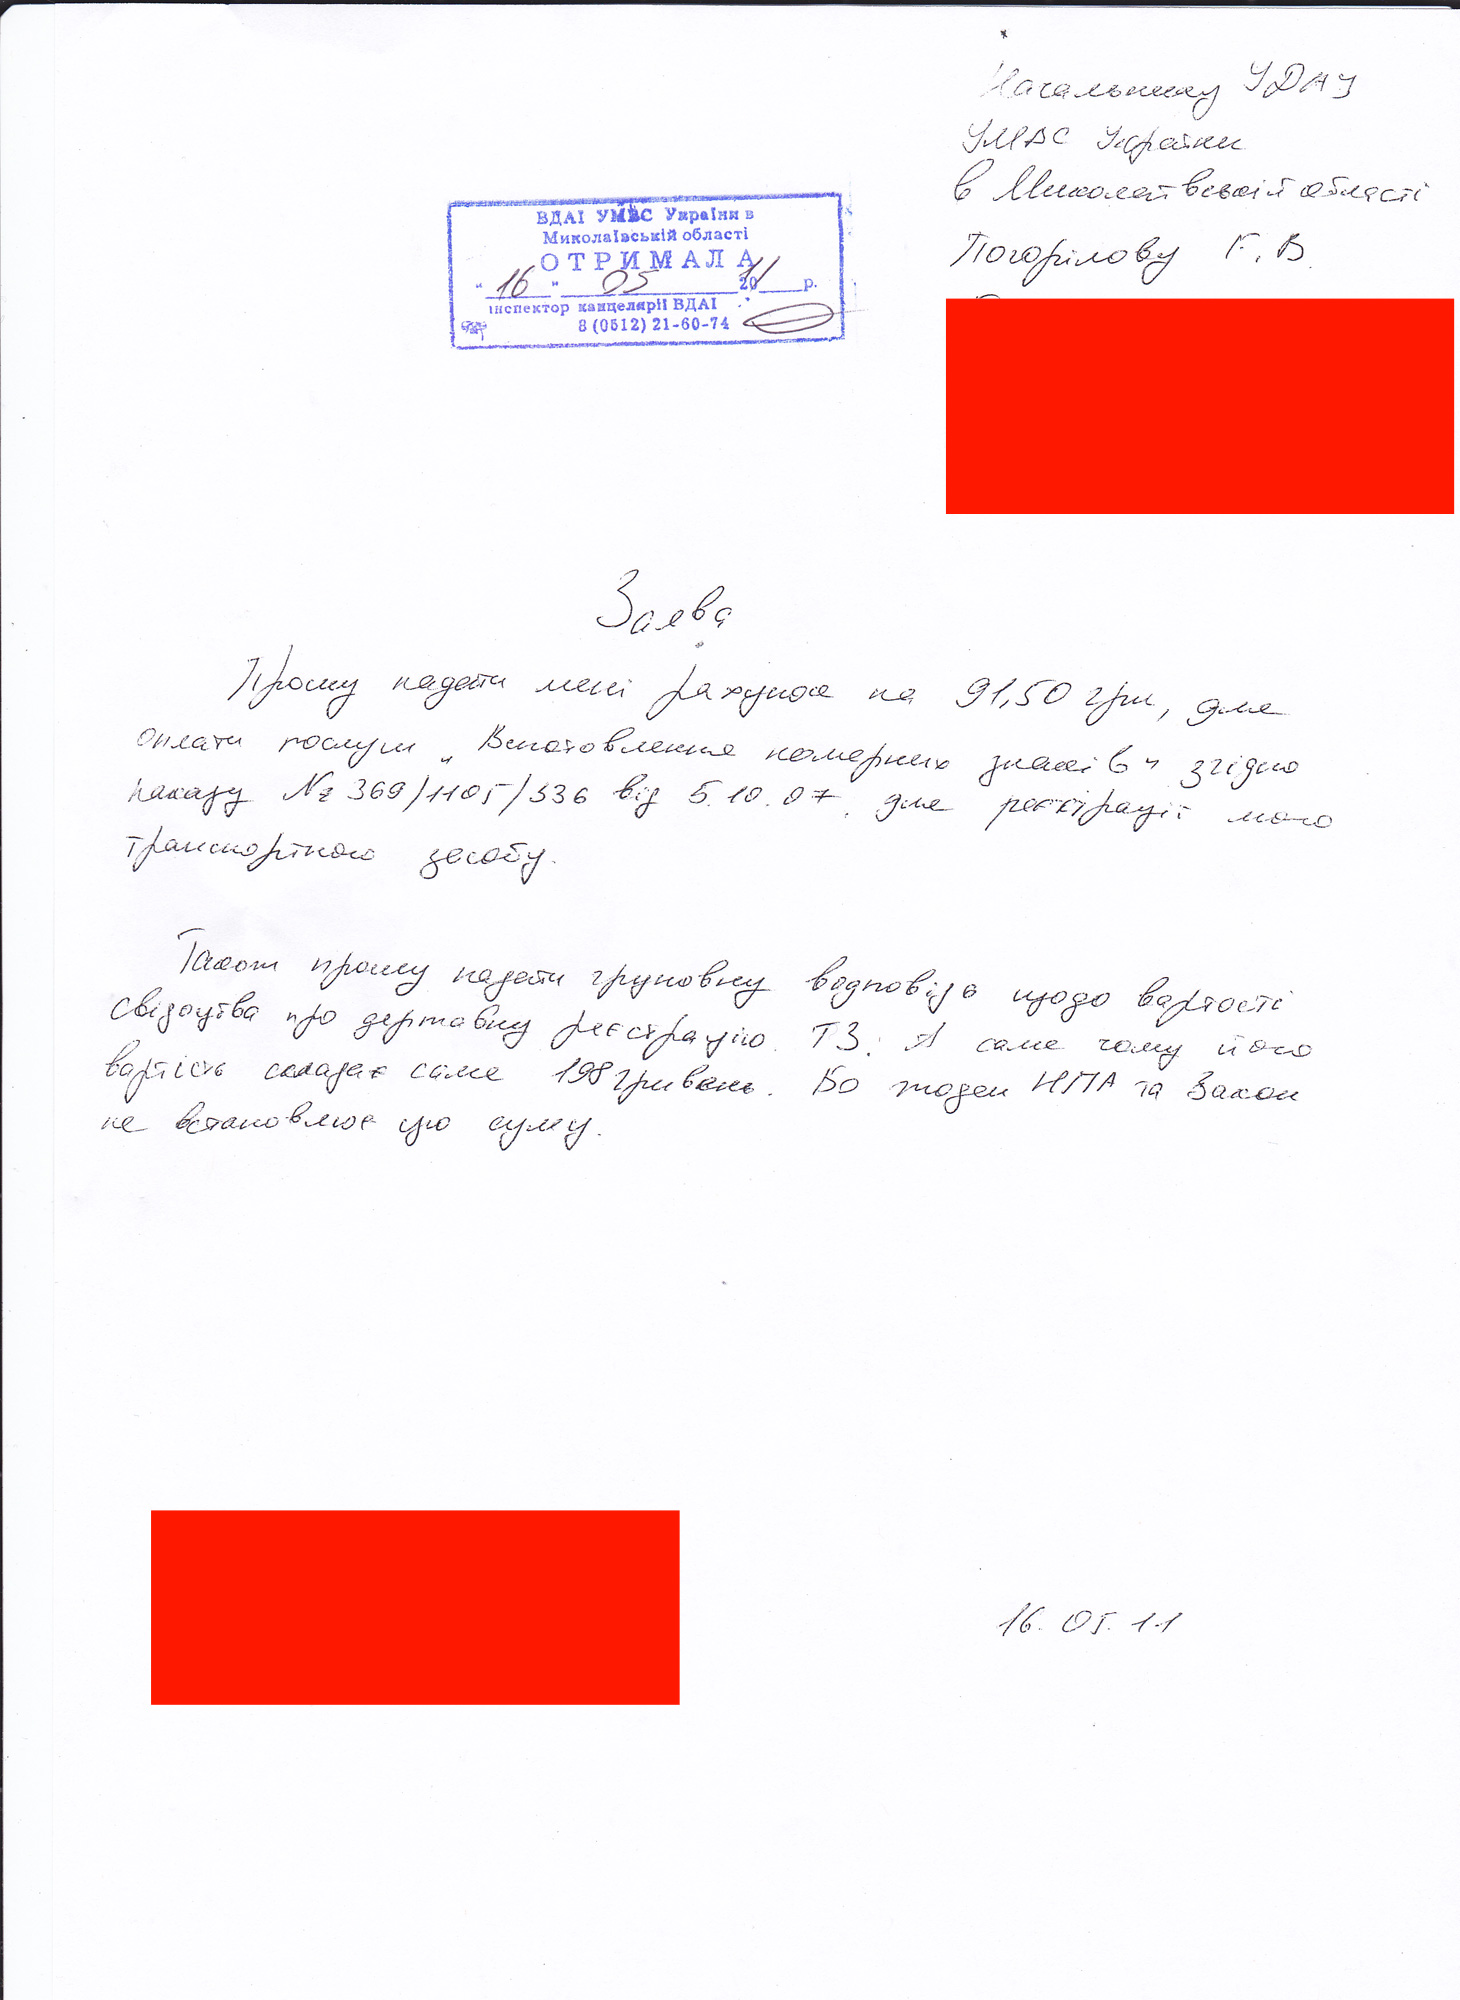 Начальнику УДАІ
УМВС України
в Миколаївській області
Погорілову Г. В.
ВДАІ УМВС України в
Миколаївській області
ОТРИМАЛА
"16" 05 2011 р.
інспектор канцелярії ВДАІ
8 (0512) 21-60-74
Заява
Прошу надати мені рахунок на 91,50 грн, для
оплати послуги „Виготовлення номерних знаків" згідно
наказу № 369/1105/336 від 5.10.07. для реєстрації мого
транспортного засобу.
Також прошу надати груповну відповідь щодо вартості
свідоцтва про державну реєстрацію ТЗ. А саме чому його
вартість складає саме 198 гривень. Бо жоден НПА та Закон
не встановлює цю суму.
16.05.11